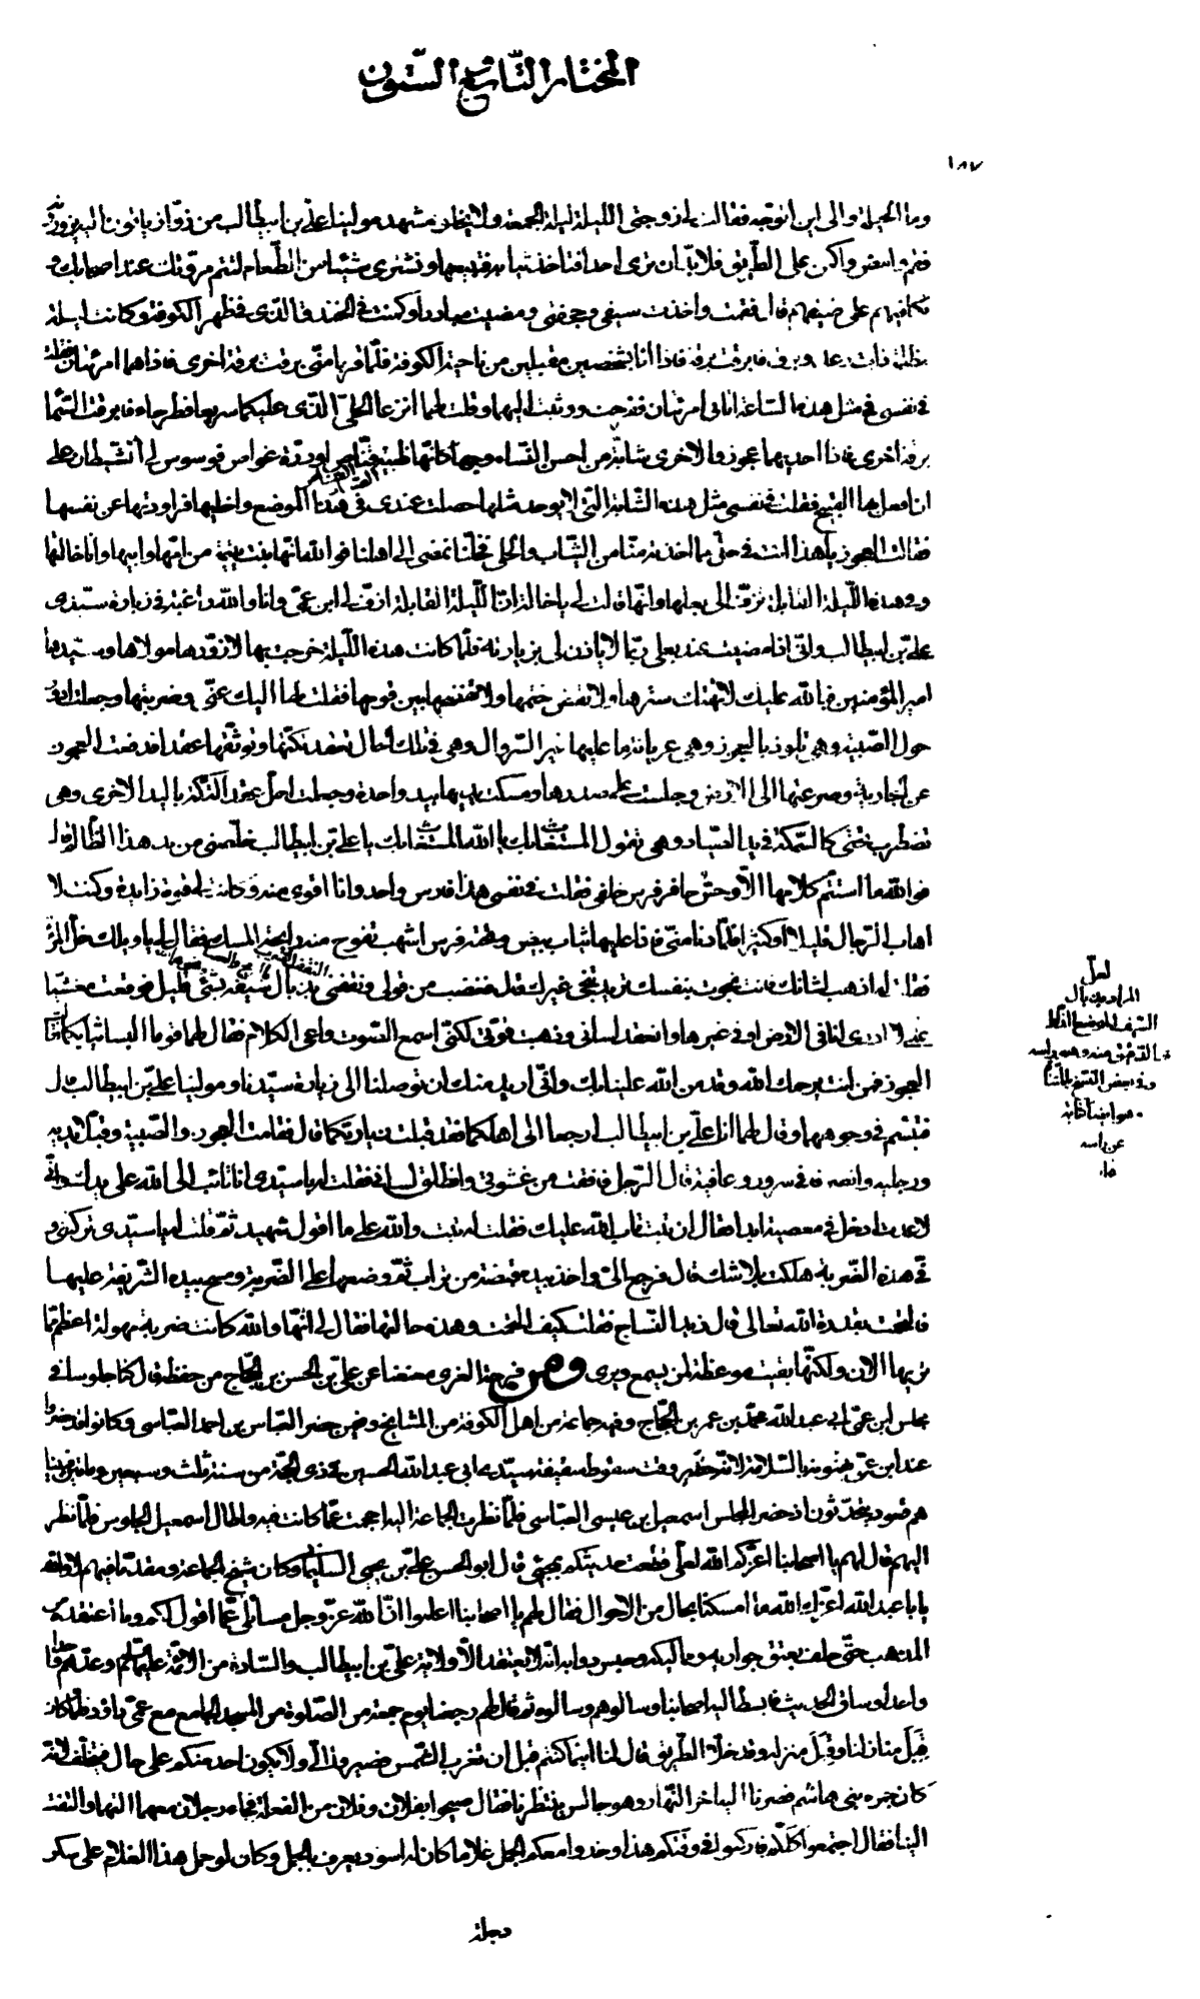 المختار التاسع الستون
١٨٧
وما الحيلة والى اين اتوجه فقالت لى زوجتى الليلة ليلة الجمعة ولا يخلو مشهد مولينا على بن ابيطالب من زوار ياتون اليه يزورونه
فقم وامض واكمن على الطريق فلا بد ان ترى احدا فتاخذ ثيابه فتبيعها ونشترى شيئا من الطعام لتتم مروتك عند اصحابك و
تكافيهم على ضيفهم قال فقمت واخذت سيفى وجحفتى ومضيت مبادرا وكمنت فى الخندق الذى فى ظهر الكوفة وكانت ليلة
مظلمة ذات رعد وبرق فابرقت برقة فاذا انا بشخصين مقبلين من ناحية الكوفة فلما قربا منى برقت برقة اخرى فاذا هما امرئتان فقلت
فى نفسى فى مثل هذه الساعة اتانى امرئتان ففرحت ووثبت اليهما وقلت لهما انزعا الحلى الذى عليكما سريعا فطرحاه فابرقت السماء
برقة اخرى فاذا احديهما عجوز والاخرى شابة من احسن النساء وجها كانها ظبية قناص او درة غواص فوسوس لى الشيطان على
ان افعل بها القبيح فقلت فى نفسى مثل هذه الشابة التى لا يوجد مثلها حصلت عندى فى هذا الموضع واخليها فراودتها عن نفسها
فقالت العجوز يا هذا انت فى حل مما اخذته منا من الثياب والحلى فخلنا نمضى الى اهلنا فوالله انها بنت يتيمة من امها وابيها وانا خالتها
وفى هذه الليلة القابلة تزف الى بعلها وانها قالت لى يا خالة ان الليلة القابلة ازف لى ابن عمى وانا والله راغبة فى زيارة سيدى
على بن ابيطالب وانى اذا مضيت عند بعلى ربما لا ياذن لى بزيارته فلما كانت هذه الليلة خرجت بها لازورها مولاها وسيدها
امير المؤمنين فبالله عليك لا تهتك سترها ولا تفض ختمها ولا تفضحها بين قومها فقلت لها اليك عنى وضربتها وجعلت ادور
حول الصبية وهى تلوذ بالعجوز وهى عريانة ما عليها غير السروال وهى فى تلك الحال تعقد تكتها وتوثقها عقدا فدفعت العجوز
عن الجارية وصرعتها الى الارض وجلست على صدرها ومسكت يديها بيد واحدة وجعلت احل عقد التكة باليد الاخرى وهى
تضطرب تحتى كالسمكة فى يد الصياد وهى تقول المستغاث بك يا الله المستغاث بك يا على بن ابيطالب خلصنى من يد هذا الظالم قال
فوالله ما استتم كلامها الا وحس حافر فرس خلفى فقلت فى نفسى هذا فارس واحد وانا اقوى منه وكانت لى قوة زايدة وكنت لا
اهاب الرجال قليلا او كثيرا فلما دنا منى فاذا عليه ثياب بيض وتحته فرس اشهب تفوح منه رايحة المسك فقال لى يا ويلك خل المرئة
فقلت له اذهب لشانك فانت نجوت بنفسك تريد تنجى غيرك قال فغضب من قولى ونفحنى بذبال سيفه بشئ قليل فوقعت مغشيا
على لا ادرى انا فى الارض او فى غيرها وانعقد لسانى وذهبت قوتى لكنى اسمع الصوت واعى الكلام فقال لهما قوما البسا ثيابكما فقالت
العجوز فمن انت يرحمك الله وقد من الله علينا بك وانى اريد منك ان توصلنا الى زيارة سيدنا ومولينا على بن ابيطالب قال
فتبسم فى وجوههما وقال لهما انا على بن ابيطالب ارجعا الى اهلكما فقد قبلت زيارتكما قال فقامت العجوز والصبية وقبلا يديه
ورجليه وانصرفا فى سرور وعافية قال الرجل فافقت من غشوتى وانطلق لسانى فقلت له يا سيدى انا تائب الى الله على يدك وانى
لا عدت ادخل فى معصيته ابدا فقال ان تبت تاب الله عليك فقلت له تبت والله على ما اقول شهيد ثم قلت له يا سيدى تركتنى و
فى هذه الضربة هلكت بلا شك قال فرجع الى واخذ بيده قبضة من تراب ثم وضعها على الضربة ومسح بيده الشريفة عليها
فالتحمت بقدرة الله تعالى قال زيد النساج فقلت كيف التحمت وهذه حالتها فقال لى انها والله كانت ضربة مهولة اعظم مما
تريها الان ولكنها بقيت موعظة لمن يسمع ويرى ومن فرحة الغرى معنعنا عن على بن الحسن بن الحجاج من حفظه قال كنا جلوسا فى
مجلس ابن عمى ابى عبد الله محمد بن عمر بن الحجاج وفيه جماعة من اهل الكوفة من المشايخ وفيمن حضر العباس بن احمد العباسى وكانوا قد حضروا
عند ابن عمى يهنونه بالسلامة لانه حضر وقت سقوط سقيفة سيدى ابى عبد الله الحسين فى ذى الحجة من سنة ثلث وسبعين ومائتين فبينا
هم قعود يتحدثون اذ حضر المجلس اسمعيل بن عيسى العباسى فلما نظرت الجماعة اليه احجمت عما كانت فيه واطال اسمعيل الجلوس فلما نظر
اليهم قال لهم يا اصحابنا اعزكم الله لعلى قطعت حديثكم بمجيئى قال ابو الحسن على بن يحيى السليمانى وكان شيخ الجماعة ومقدما فيهم لا والله
يا با عبد الله اعزك الله ما امسكنا بحال من الاحوال فقال لهم يا اصحابنا اعلموا ان الله عز وجل مسائلى عما اقول لكم وما اعتقده من
المذهب حتى حلف بعتق جواريه ومماليكه وحبس دوابه انه لا يعتقد الا ولاية على بن ابيطالب والسادة من الائمة عليهم السلم وعدهم واحدا
واحدا وساق الحديث فابسط اليه اصحابنا وسالهم وسالوه ثم قال لهم رجعنا يوم جمعة من الصلوة من المسجد الجامع مع عمى داود فلما كان
قبل منازلنا وقبل منزله وقد خلا الطريق قال لنا اينما كنتم قبل ان تغرب الشمس فصيروا الى ولا يكون احد منكم على حال فيتخلف لانه
كان جمرة بنى هاشم فصرنا اليه اخر النهار وهو جالس ينتظرنا فقال صيحوا بفلان وفلان من الفعلة فجاءه رجلان معهما التهما والتفت
الينا فقال اجتمعوا كلكم فاركبوا فى وقتكم هذا وخذوا معكم الجمل غلاما كان له اسود يعرف بالجمل وكان لو حمل هذا الغلام على سكر
دجلة
لعل
المراد من ذبال
السيف
عن راسه